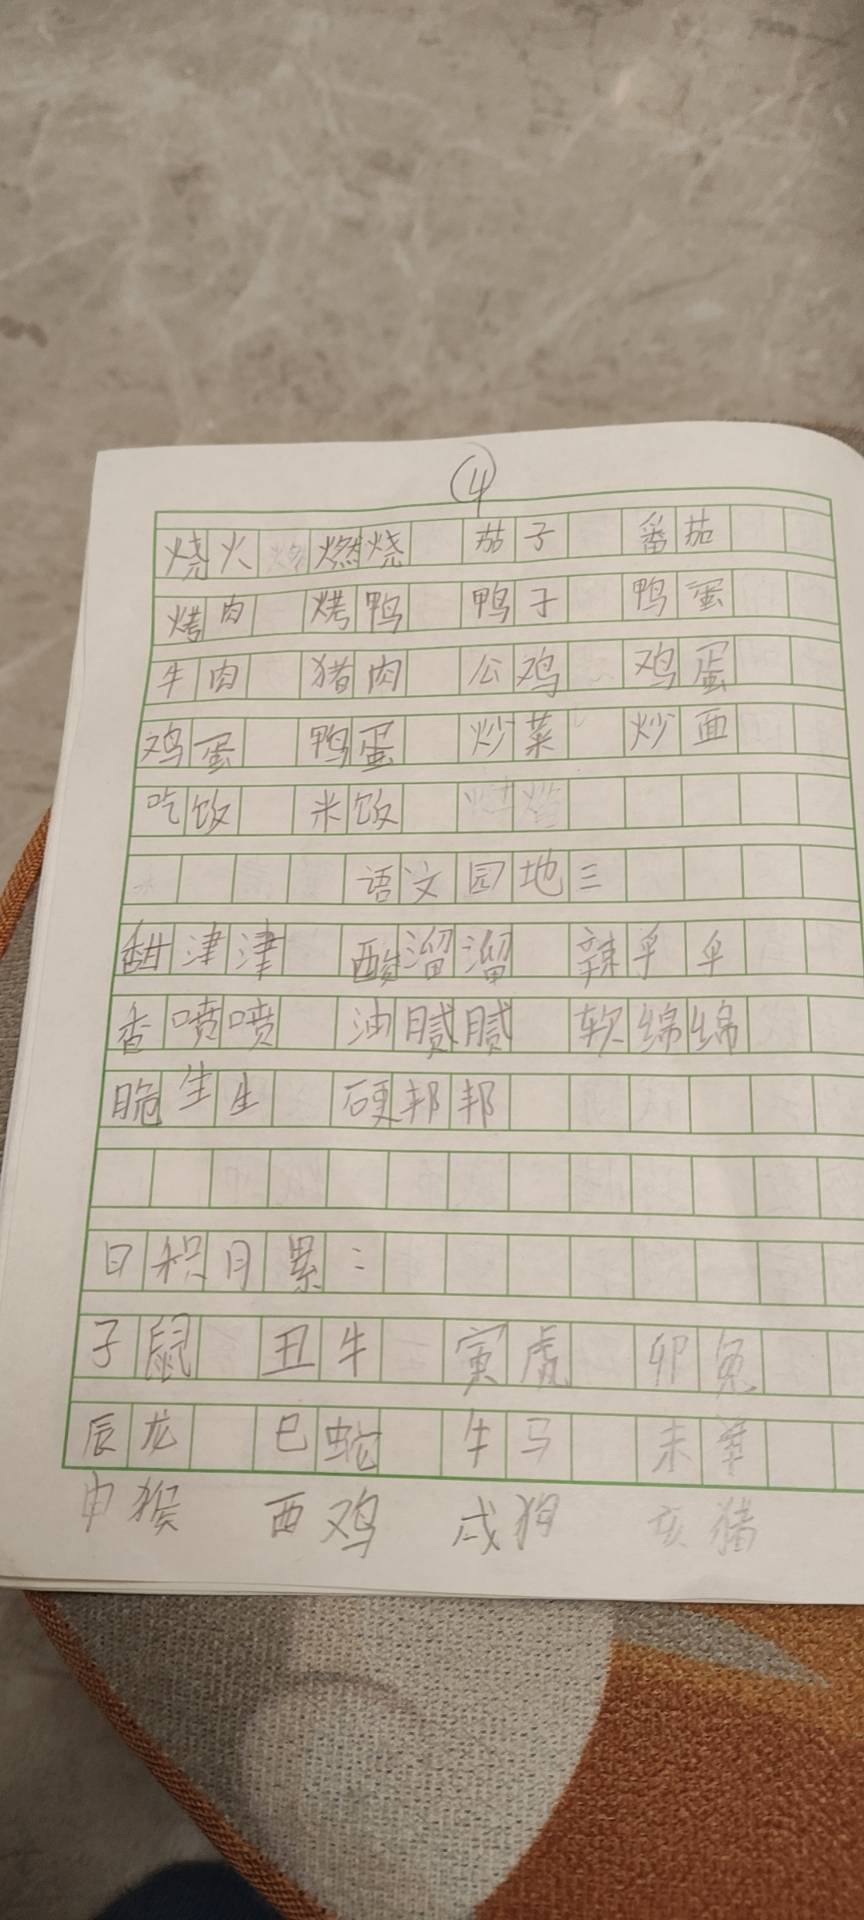 ④
烧火 燃烧 茄子 番茄
烤肉 烤鸭 鸭子 鸭蛋
牛肉 猪肉 公鸡 鸡蛋
鸡蛋 鸭蛋 炒菜 炒面
吃饭 米饭
语文园地三
甜津津 酸溜溜 辣乎乎
香喷喷 油腻腻 软绵绵
脆生生 硬邦邦
日积月累：
子鼠 丑牛 寅虎 卯兔
辰龙 巳蛇 牛马 未羊
申猴 西鸡 戌狗 亥猪